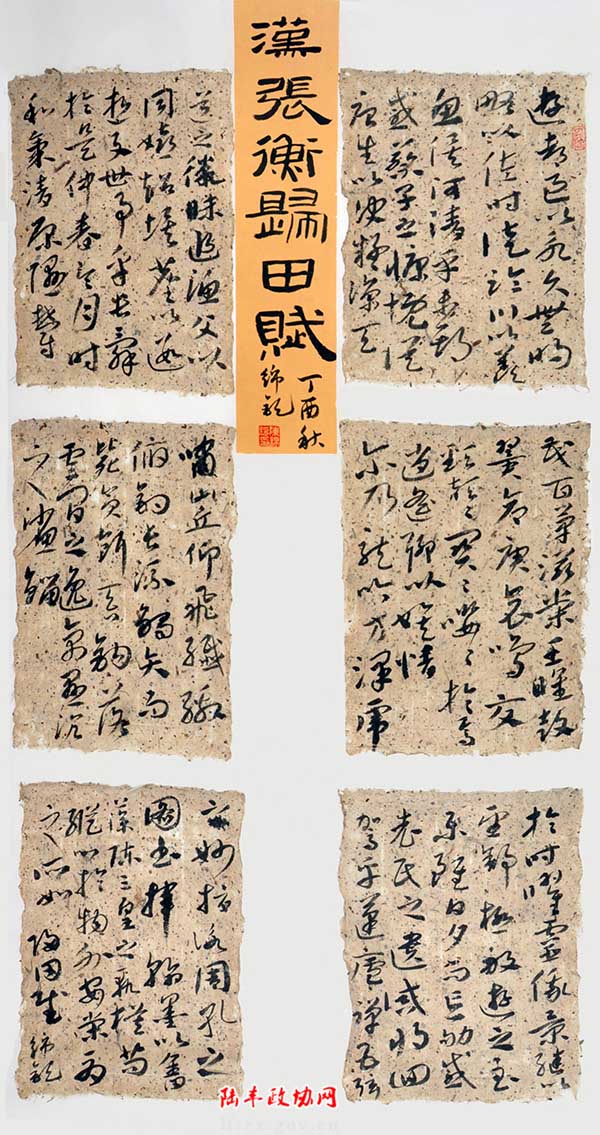 漢張衡歸田賦
丁酉秋
遊都邑以永久無明
略以佐時徒臨川以羨
魚俟河清乎未期
感蔡子之慷慨從
唐生以決疑諒天
道之微昧追漁父以
同嬉超埃塵以遐
逝與世事乎長辭
於是仲春令月時
和氣清原隰鬱
茂百草滋榮王雎鼓
翼倉庚哀鳴交
頸頡頏關々嚶々於焉
逍遙聊以娛情
爾乃龍吟方澤虎
嘯山丘仰飛纖繳
俯釣長流觸矢而
斃貪餌吞鉤落
雲間之逸禽懸沉
之魦鰡
於時曜靈俄景繼以
望舒極般遊之至
樂雖日夕而忘劬感
老氏之遺誡將回
駕乎蓬廬彈五弦
之妙指詠周孔之
圖書揮翰墨以奮
藻陳三皇之軌模苟
縱心於物外安榮辱
之所如 歸田賦
陆丰政协网